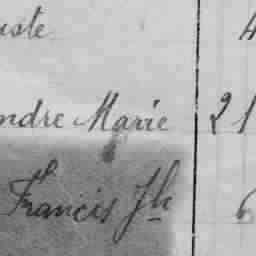 uste 4
ndre Marie 21
Francis Jh 6